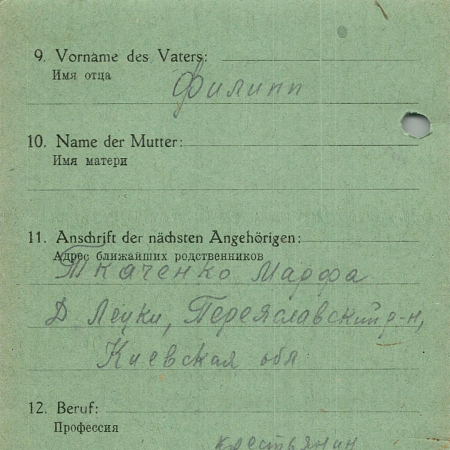 9. Vorname des Vaters:
Имя отца
Филипп
10. Name der Mutter:
Имя матери
11. Anschrift der nächsten Angehörigen:
Адрес ближайших родственников
Ткаченко Марфа
Д Леуки, Переяславский р-н,
Киевская обл
12. Beruf:
Профессия
крестьянин